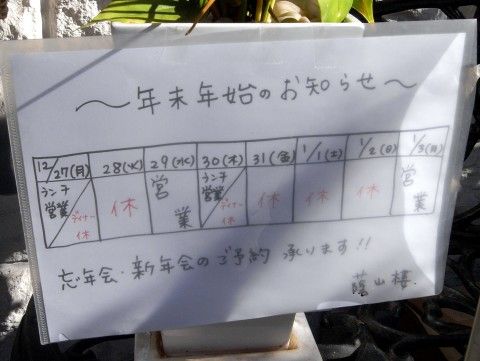 〜年末年始のお知らせ〜
12/27(月) 28(火) 29(水) 30(木) 31(金) 1/1(土) 1/2(日) 1/3(月)
ランチ営業 ディナー休 休 営業 ランチ営業 ディナー休 休 休 休 営業
忘年会・新年会のご予約 承ります!!
蔭山樓